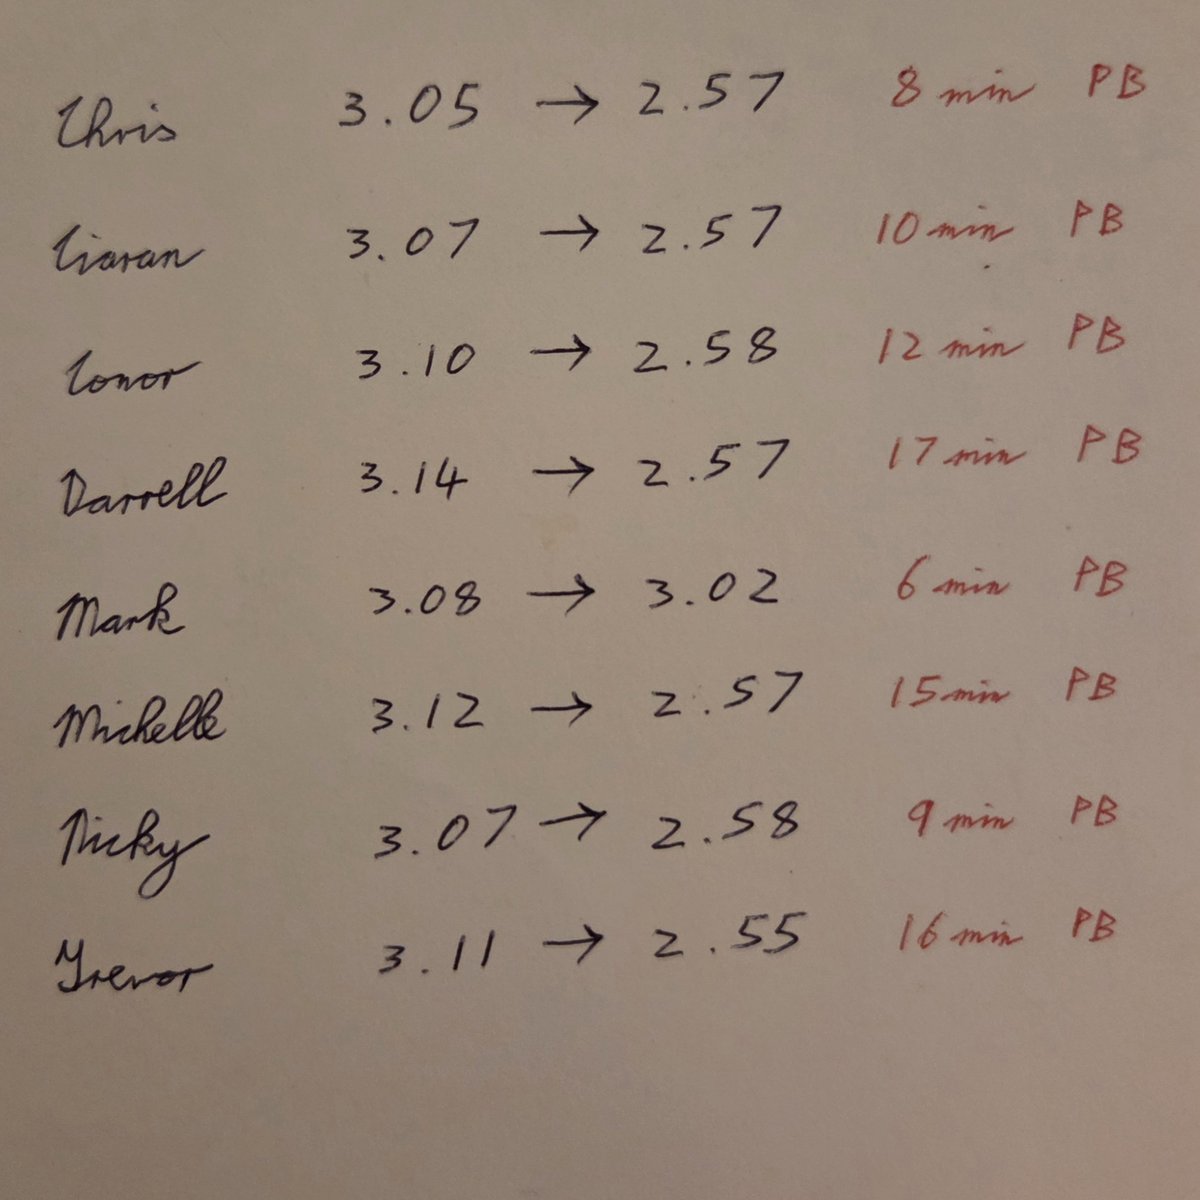 Chris 3.05 → 2.57 8 min PB
Ciaran 3.07 → 2.57 10 min PB
Conor 3.10 → 2.58 12 min PB
Darrell 3.14 → 2.57 17 min PB
Mark 3.08 → 3.02 6 min PB
Michelle 3.12 → 2.57 15 min PB
Nicky 3.07 → 2.58 9 min PB
Trevor 3.11 → 2.55 16 min PB